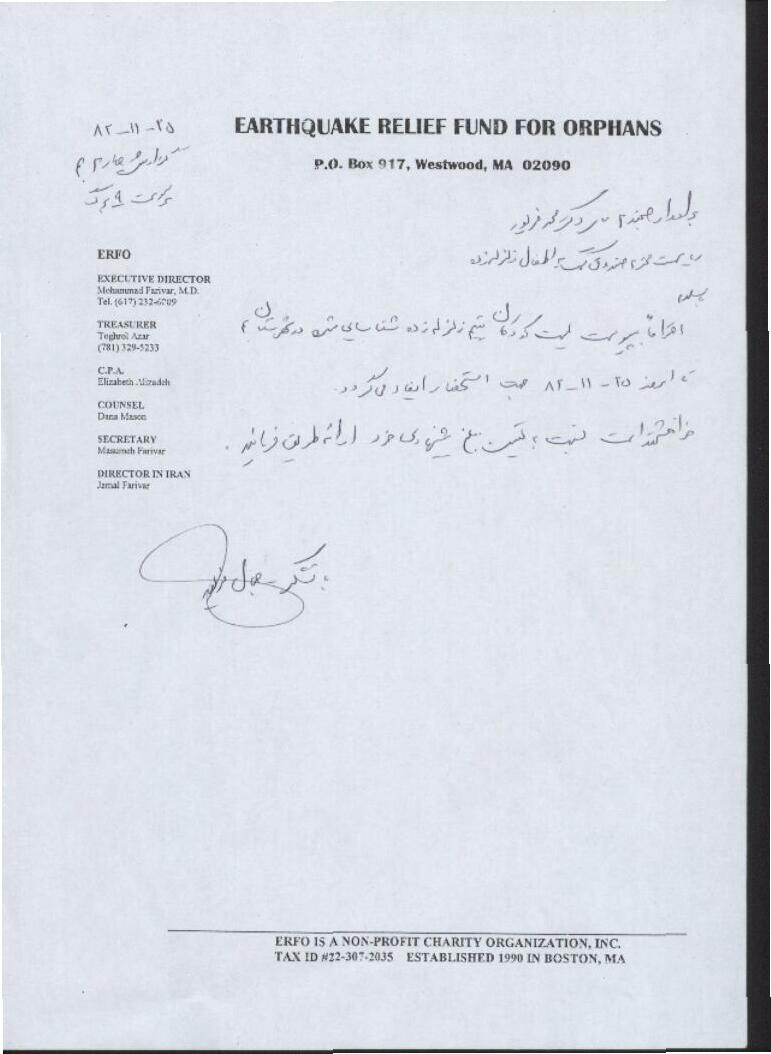 EARTHQUAKE RELIEF FUND FOR ORPHANS
P.O. Box 917, Westwood, MA 02090
۸۲-۱۱-۲۵
گزارش چهارم
پیوست ۹ برگ
ERFO
EXECUTIVE DIRECTOR
Mohammad Farivar, M.D.
Tel. (617) 232-6009
TREASURER
Toghrol Azar
(781) 329-5233
C.P.A.
Elizabeth Alizadeh
COUNSEL
Dana Mason
SECRETARY
Masumeh Farivar
DIRECTOR IN IRAN
Jamal Farivar
برادر ارجمندم دکتر محمد فریور
ریاست محترم صندوق کمک به اطفال زلزله زده
احتراماً بپیوست لیست کودکان یتیم زلزله زده شناسایی شده در
تا امروز ۲۵-۱۱-۸۲ جهت استحضار ایفاد می گردد.
خواهشمند است نسبت به تعیین مبلغ پیشنهادی خود ارائه طریق فرمائید.
با تشکر جمال فریور
ERFO IS A NON-PROFIT CHARITY ORGANIZATION, INC.
TAX ID #22-307-2035 ESTABLISHED 1990 IN BOSTON, MA